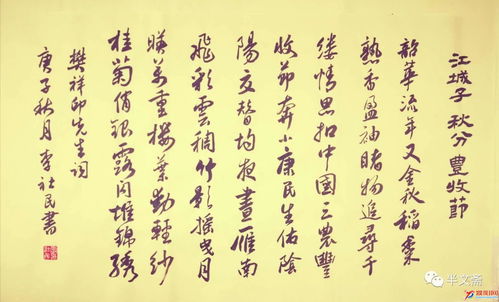 江城子 秋分豊收節
韶華流年又金秋稻粟
熟香盈袖睹物追尋千
縷情思扣中国三農豐
收節奔小康民生佑陰
陽交替均夜晝雁南
飛彩雲稠竹影摇曳月
暎萬重樓葉動輕紗
桂菊俏銀露闪堆錦綉
樊祥印先生詞
庚子秋月李社民書
半文斋